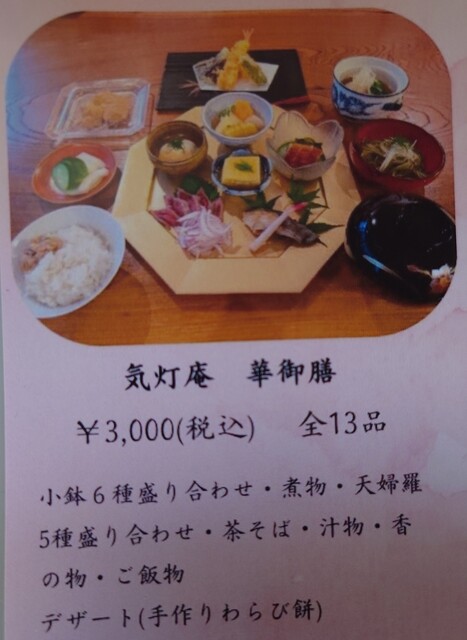 気灯庵 華御膳
￥3,000(税込) 全13品
小鉢６種盛り合わせ・煮物・天婦羅
5種盛り合わせ・茶そば・汁物・香
の物・ご飯物
デザート(手作りわらび餅)